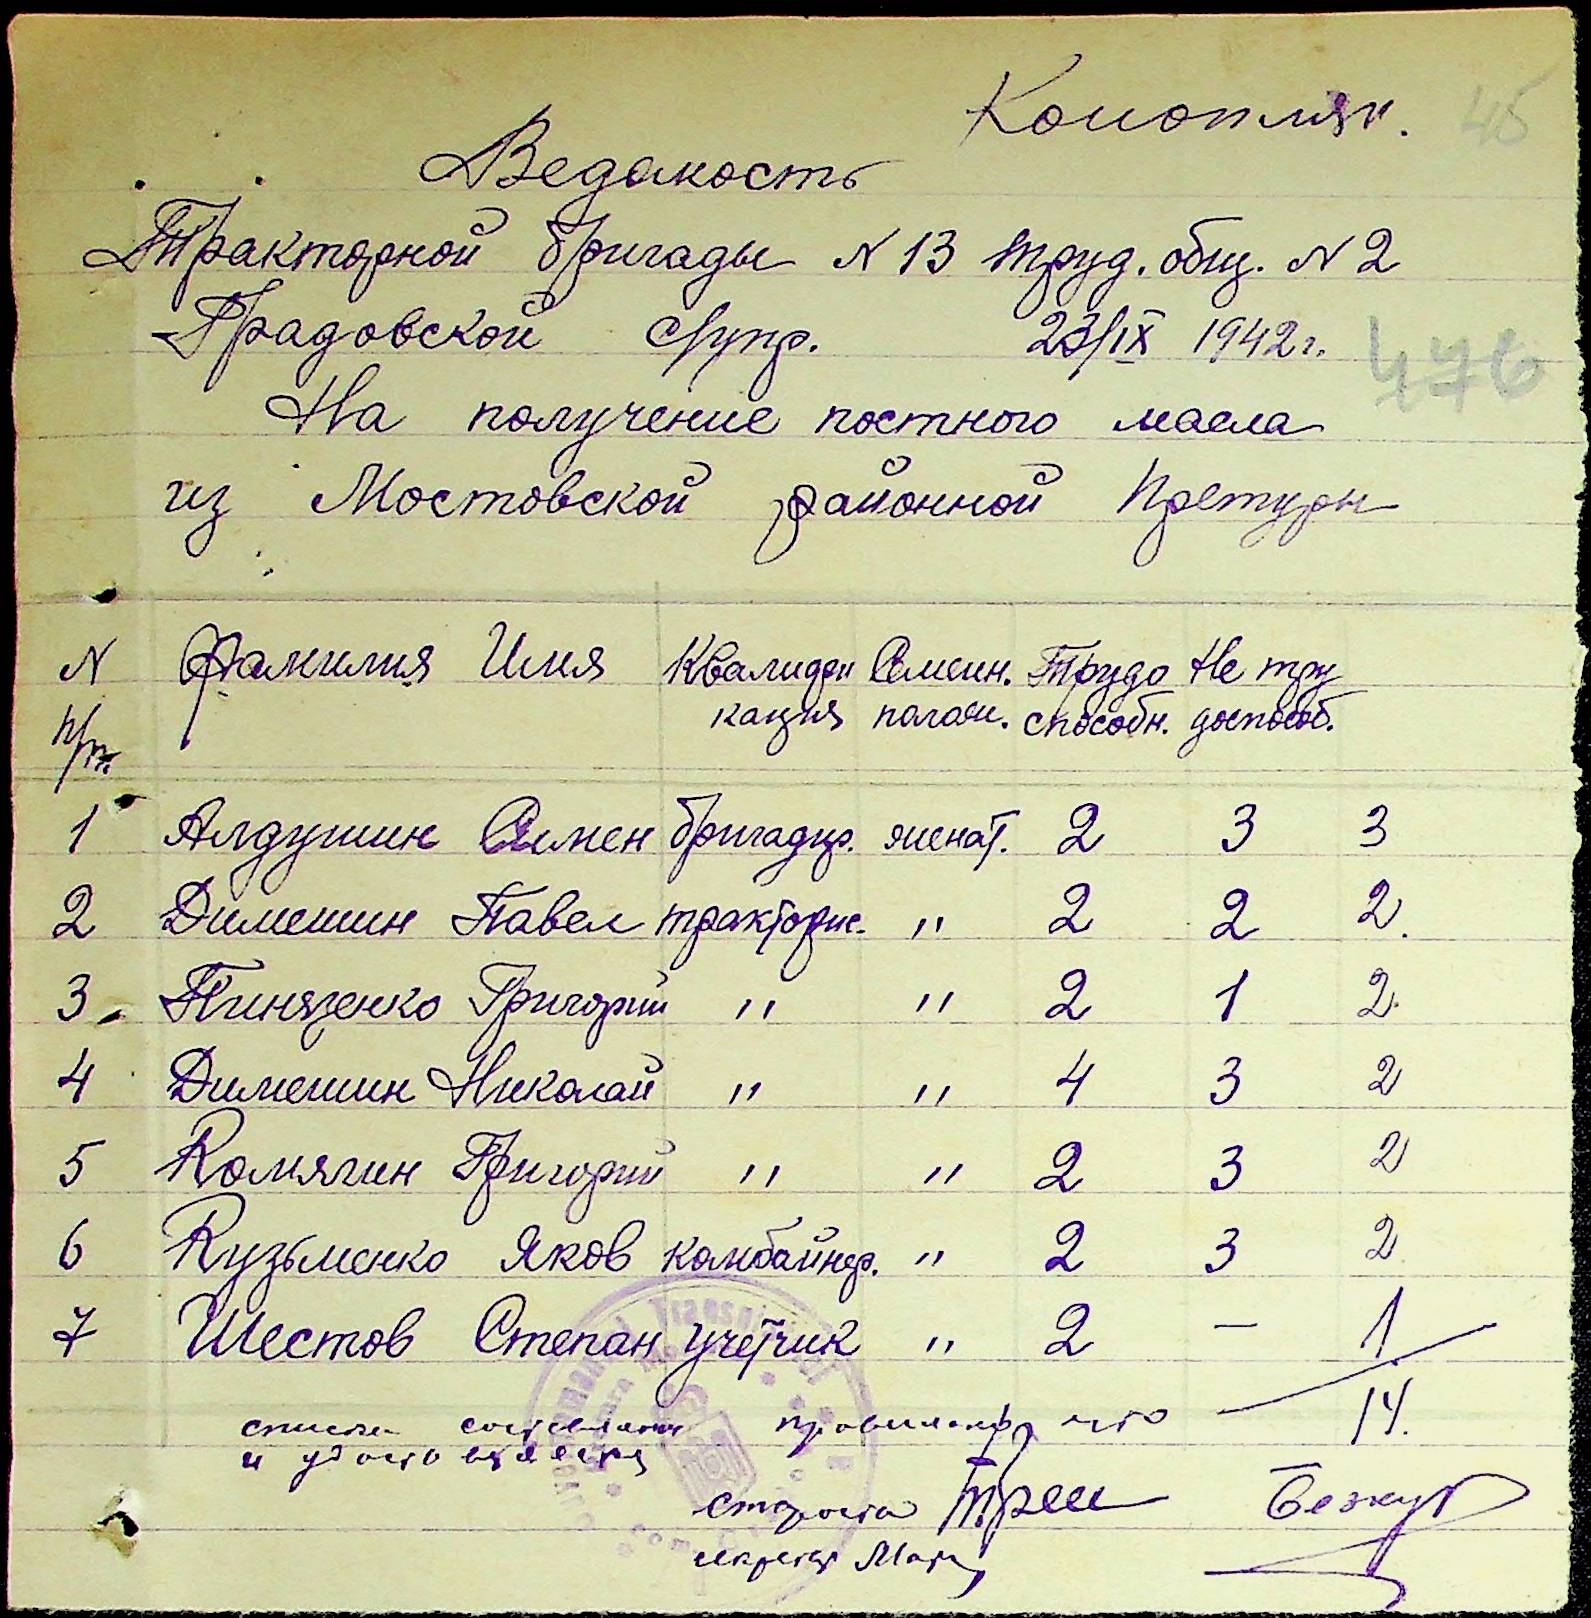 Конопляк. 45
Ведомость
Тракторной бригады N 13 труд. общ. N 2
Градовской с/упр. 23/IX 1942 г.
476
На получение постного масла
из Мостовской районной Претуры
N п/п. Фамилия Имя Квалифи кация Семейн. полож. Трудо способн. Не тру доспособ.
1 Алдушин Семен бригадир. женат. 2 3 3
2 Димешин Павел тракторис. " 2 2 2.
3. Пиняченко Григорий " " 2 1 2.
4 Димешин Николай " " 4 3 2
5 Комягин Григорий " " 2 3 2
6 Кузьменко Яков комбайнер. " 2 3 2
7 Шестов Степан учетчик " 2 — 1
14.
списки составлены правильно, что
и удостоверяется
староста
секретарь